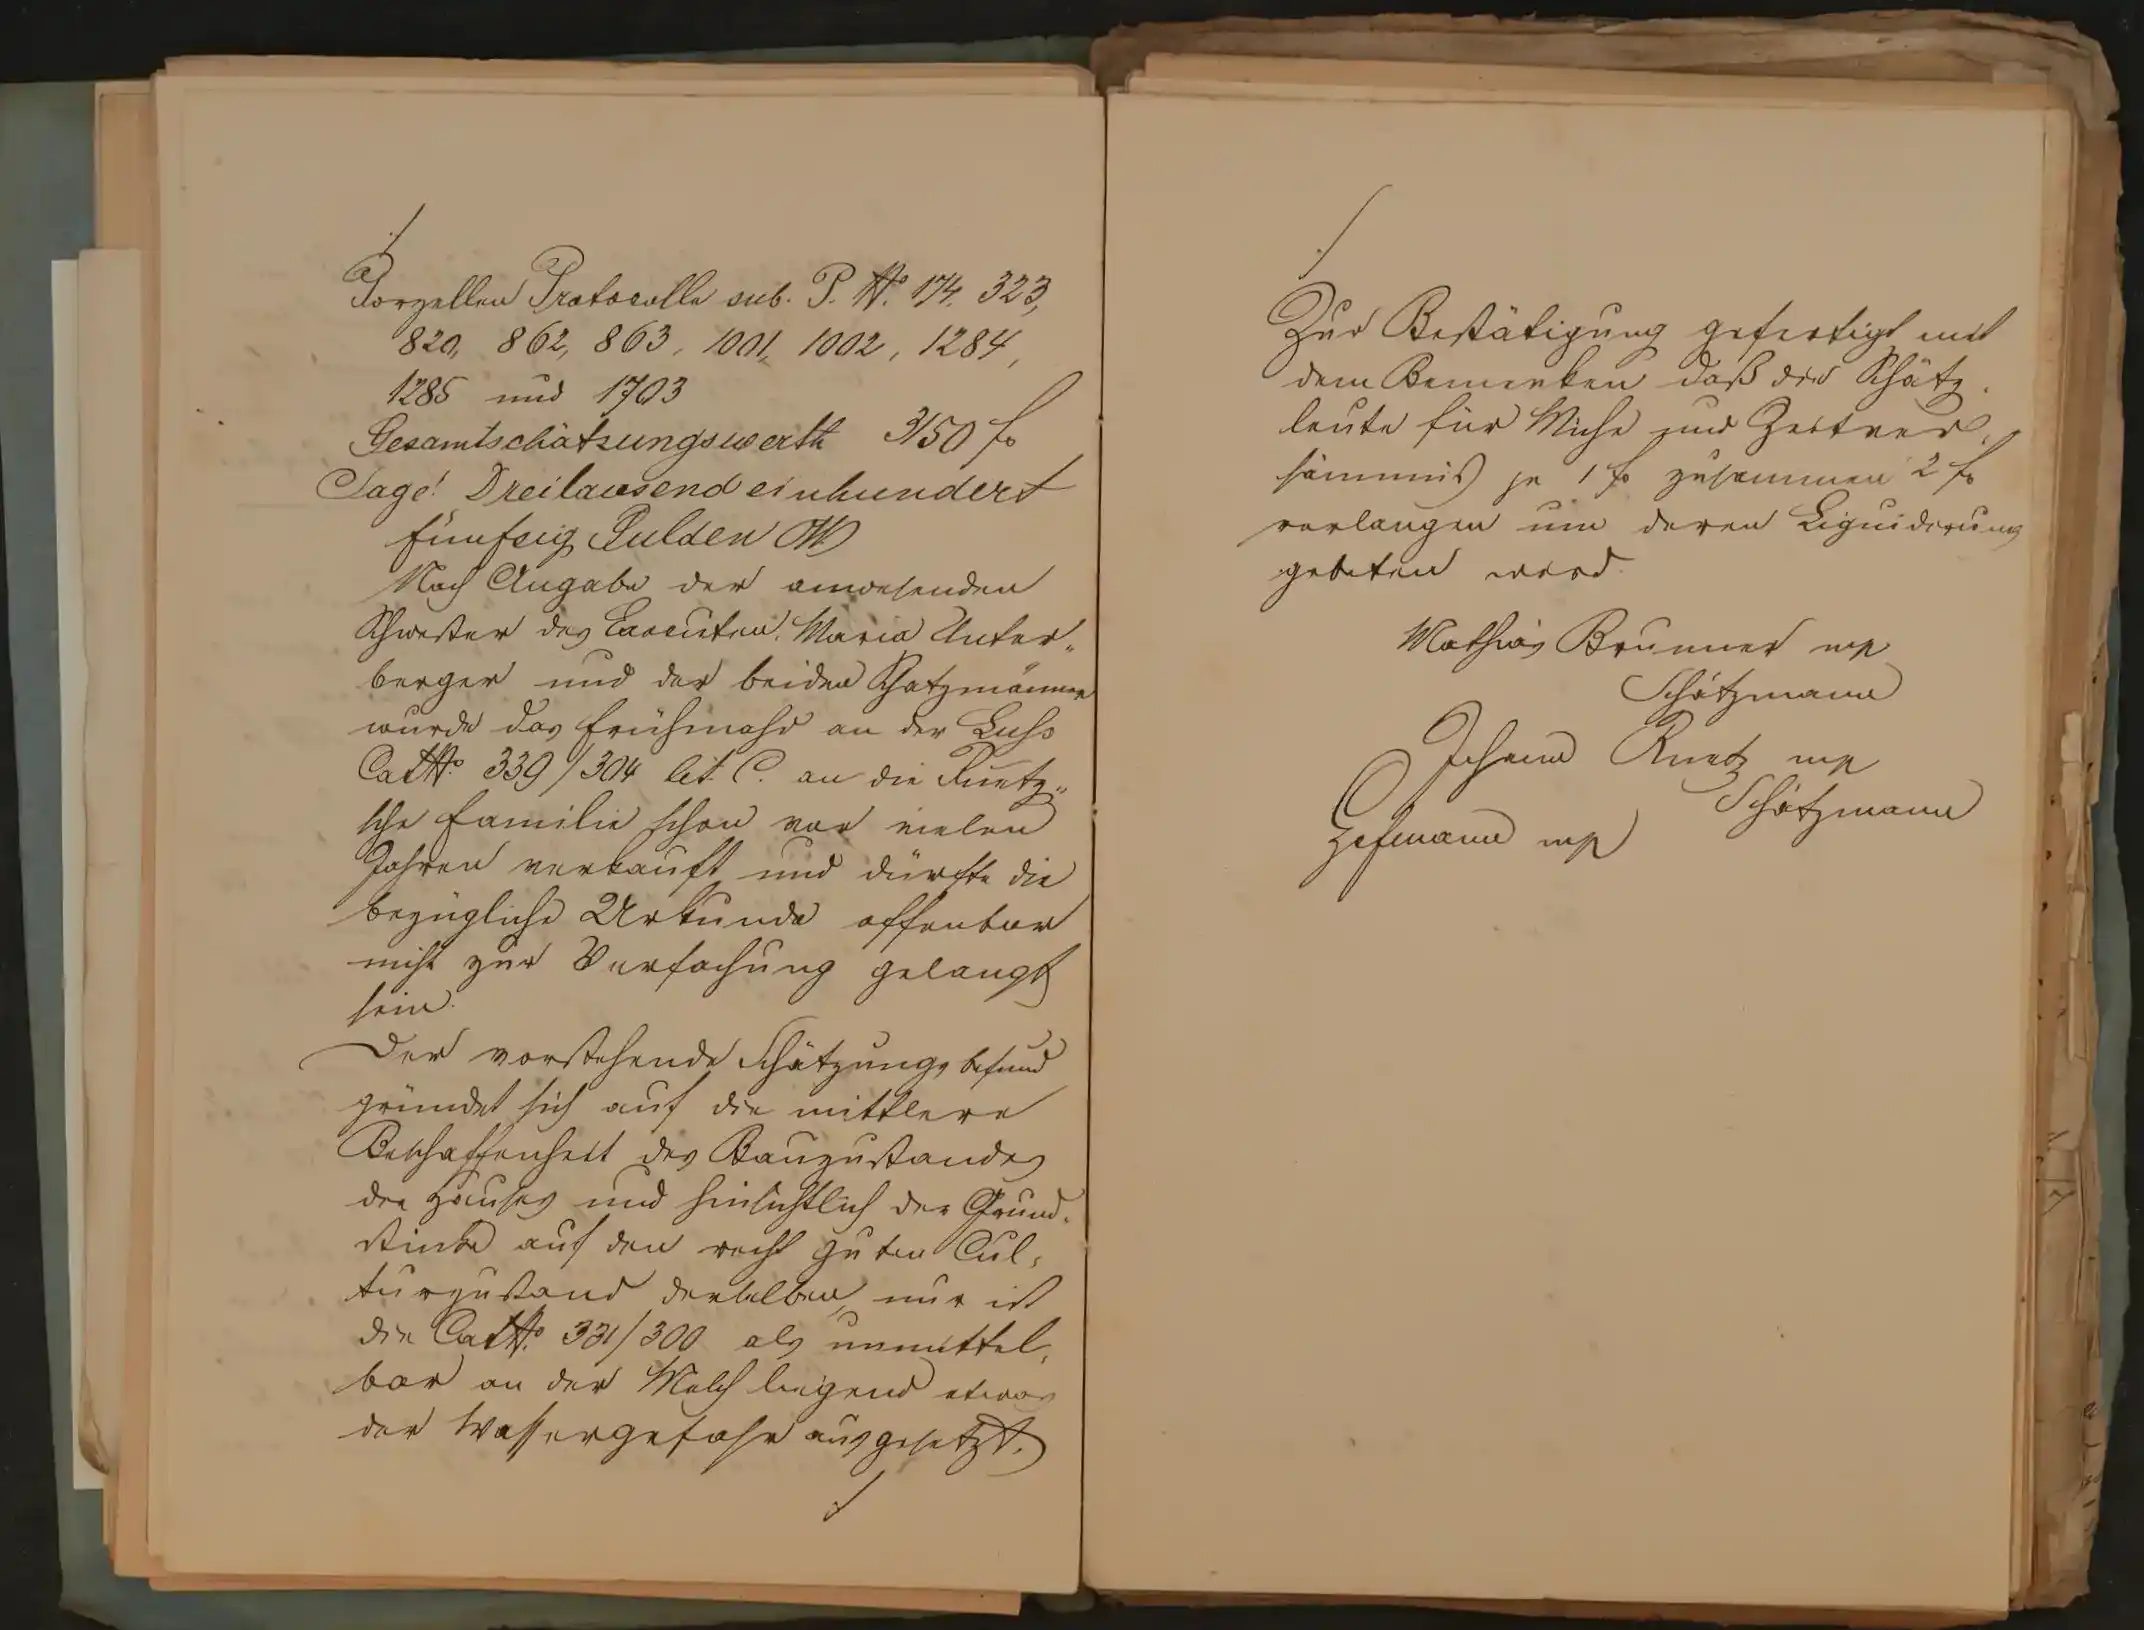 ./.
Parzellen Protocolle sub. P. No. 174. 323,
820, 862, 863, 1001, 1002, 1284,
1285 und 1703
Gesamtschätzungswerth 3150 f
Sage! Dreitausend einhundert
fünfzig Gulden ÖW
Nach Angabe der anwesenden
Schwester des Executen, Maria Unter„
berger und der beiden Schatzmänner
wurde das Frühmahd an der Luß
Cat No. 339/304 lit. C. an die Ruetz„
sche Familie schon vor vielen
Jahren verkauft und dürfte die
bezügliche Urkunde offenbar
nicht zur Verfachung gelangt
sein.
Der vorstehende Schätzungsbefund
gründet sich auf die mittlere
Beschaffenheit des Bauzustandes
des Hauses und hinsichtlich der Grund„
stücke auf den recht guten Cul„
turzustand derselben, nur ist
die Cat No. 331/300 als unmittel„
bar an der Melch liegend etwas
der Wassergefahr ausgesetzt.
./.
./.
Zur Bestätigung gefertigt mit
dem Bemerken daß die Schätz„
leute für Mühe und Zeitver„
sämmniß je 1 f zusammen 2 f
verlangen um deren Liquidirung
gebeten wird.
Mathias Brunner mp
Schätzmann
Johann Ruetz mp
Schätzmann
Hofmann mp